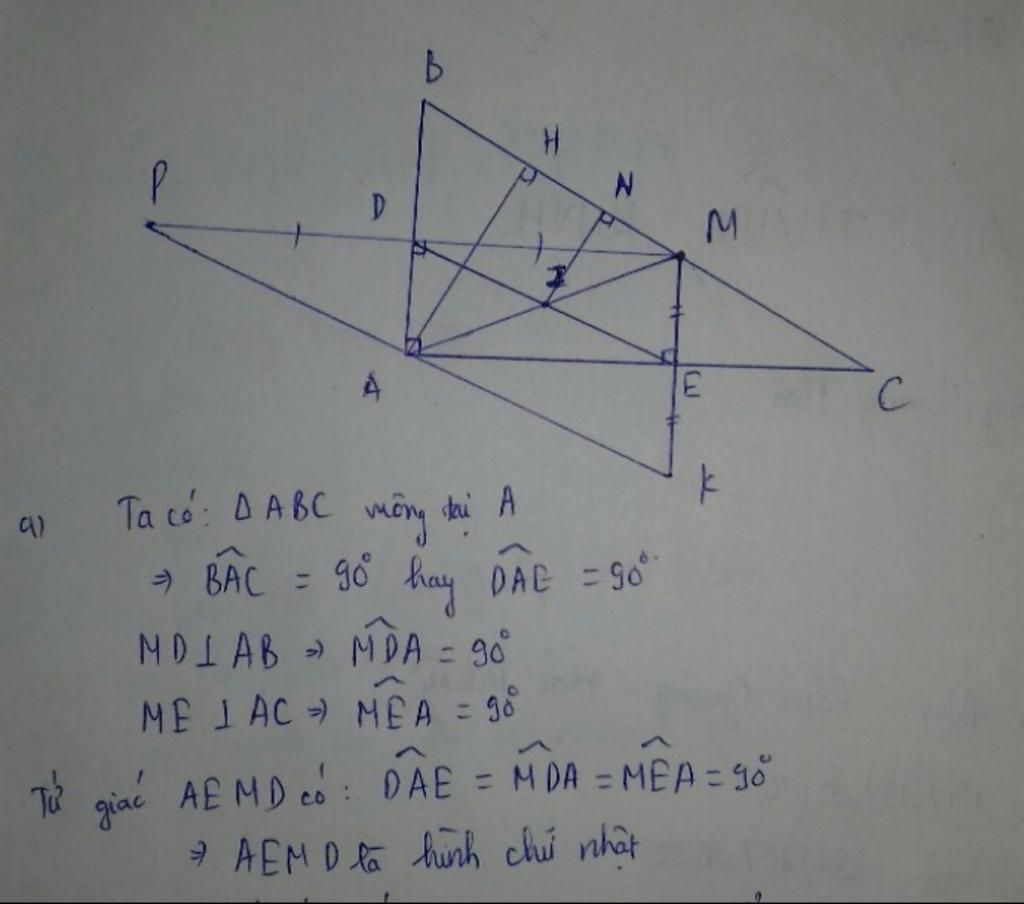 B
H
P
N
D
M
I
A
E
C
K
a) Ta có: Δ ABC vuông tại A
⇒ \widehat{BAC} = 90° hay \widehat{DAE} = 90°
MD ⊥ AB ⇒ \widehat{MDA} = 90°
ME ⊥ AC ⇒ \widehat{MEA} = 90°
Tứ giác AEMD có: \widehat{DAE} = \widehat{MDA} = \widehat{MEA} = 90°
⇒ AEMD là hình chữ nhật